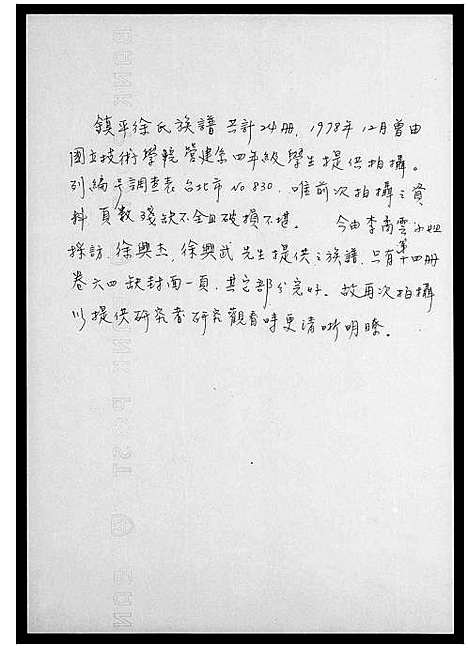 鎮平徐氏族譜 共計24册, 1978年12月曾由
國立技術學院營建系四年級學生提供拍攝。
列編号調查表台北市No 830. 唯前次拍攝之資
料頁数殘缺不全且破損不堪。 今由李南雲小姐
採訪. 徐興杰, 徐興武先生提供之族譜. 只有第十四册
卷六四缺封面一頁. 其它部分完好. 故再次拍攝
以提供研究者研究觀看時更清晰明瞭。